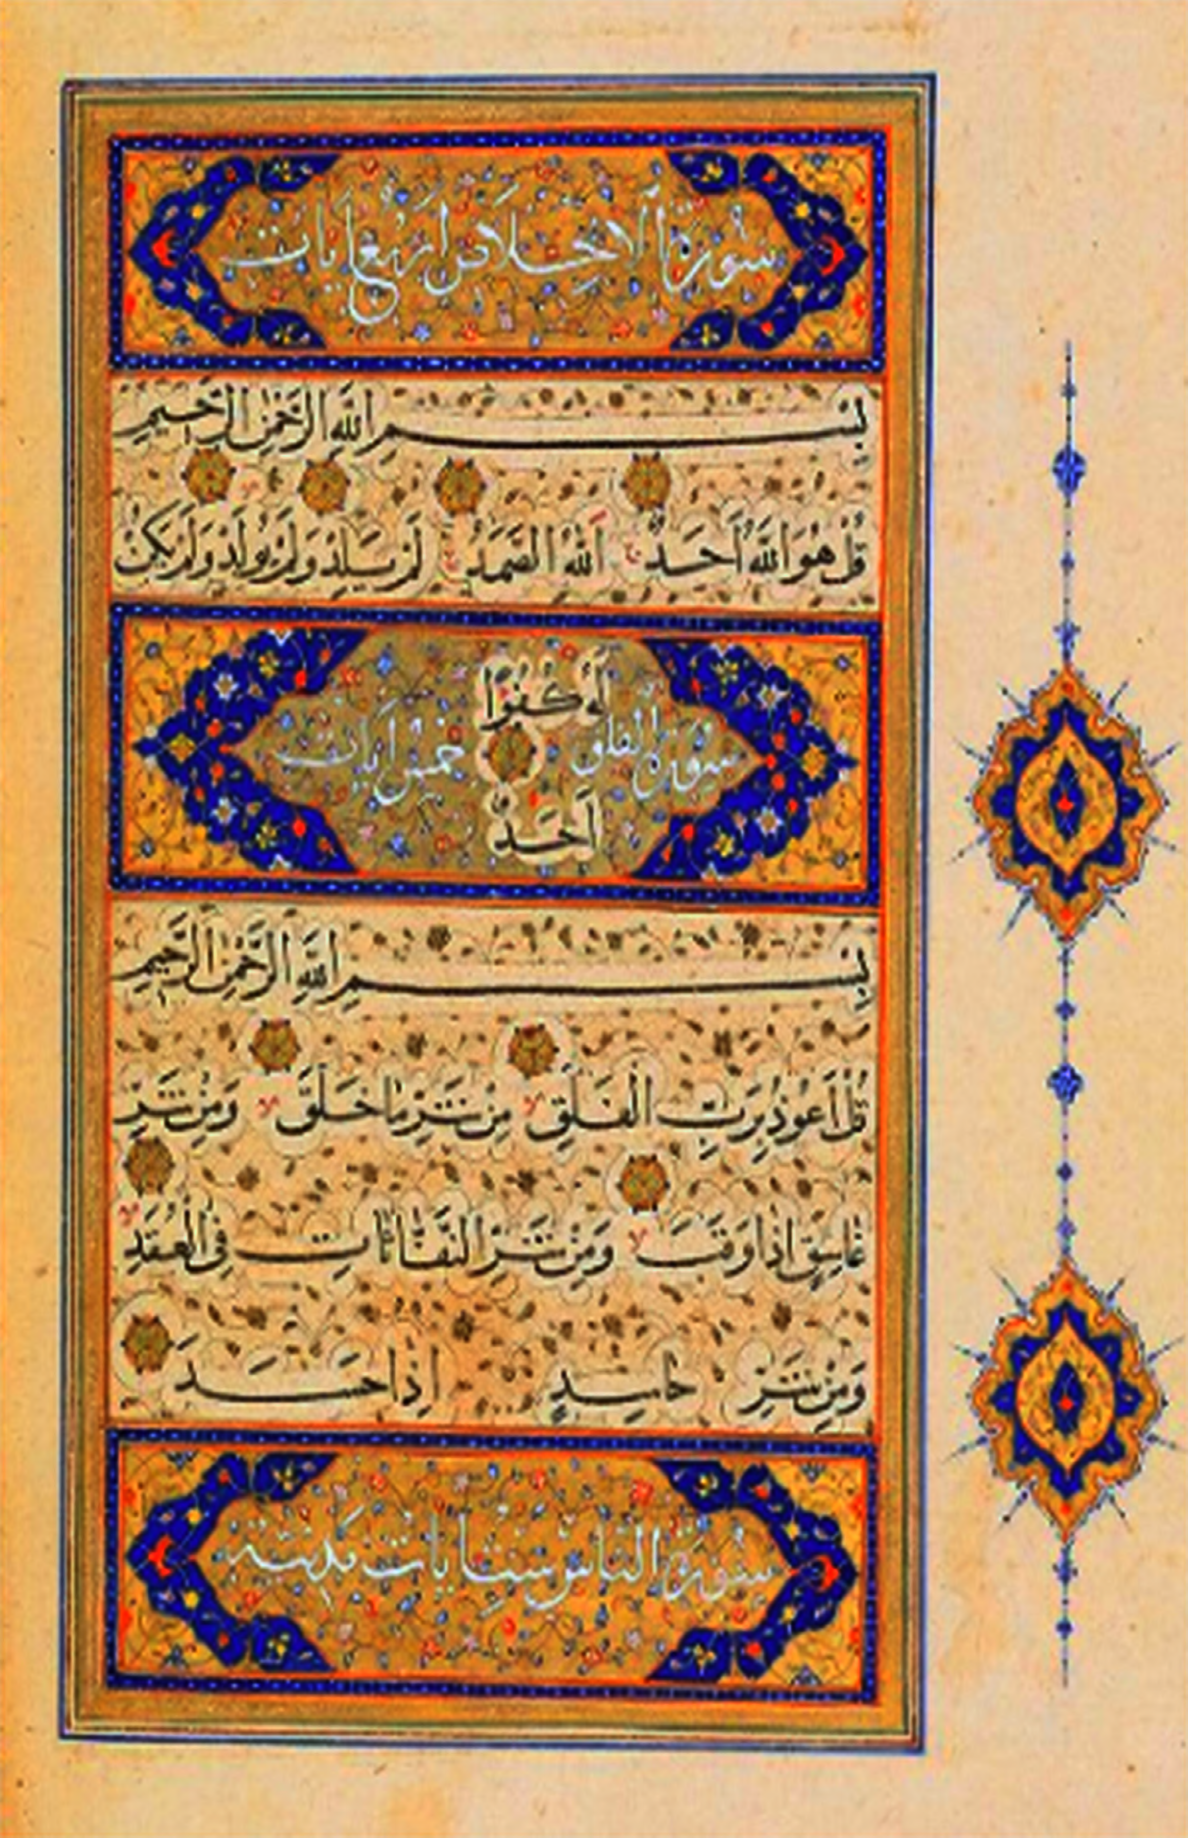 سورة الاخلاص اربع ايات
بِسْمِ اللهِ الرَّحْمٰنِ الرَّحِيمِ
قُلْ هُوَ اللهُ أَحَدٌ اَللهُ الصَّمَدُ لَمْ يَلِدْ وَلَمْ يُولَدْ وَلَمْ يَكُنْ
لَهُ كُفُوًا
سورة الفلق خمس ايات
أَحَدٌ
بِسْمِ اللهِ الرَّحْمٰنِ الرَّحِيمِ
قُلْ أَعُوذُ بِرَبِّ الْفَلَقِ مِنْ شَرِّ مَا خَلَقَ وَمِنْ شَرِّ
غَاسِقٍ اِذَا وَقَبَ وَمِنْ شَرِّ النَّفَّاثَاتِ فِي الْعُقَدِ
وَمِنْ شَرِّ حَاسِدٍ اِذَا حَسَدَ
سورة الناس ست ايات مدنية